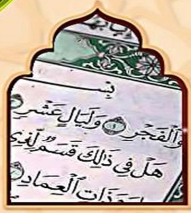 بِسْـ
وَٱلْفَجْرِ ١ وَلَيَالٍ عَشْرٍ
هَلْ فِى ذَٰلِكَ قَسَمٌ لِّذِى
ذَاتِ ٱلْعِمَادِ